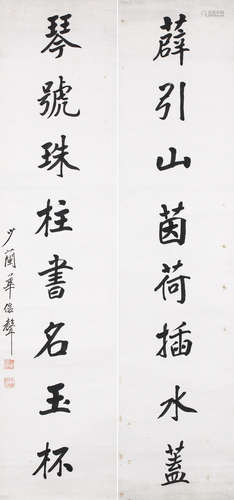 薜引山茵荷插水蓋
琴號珠柱書名玉杯
少蘭華俊聲